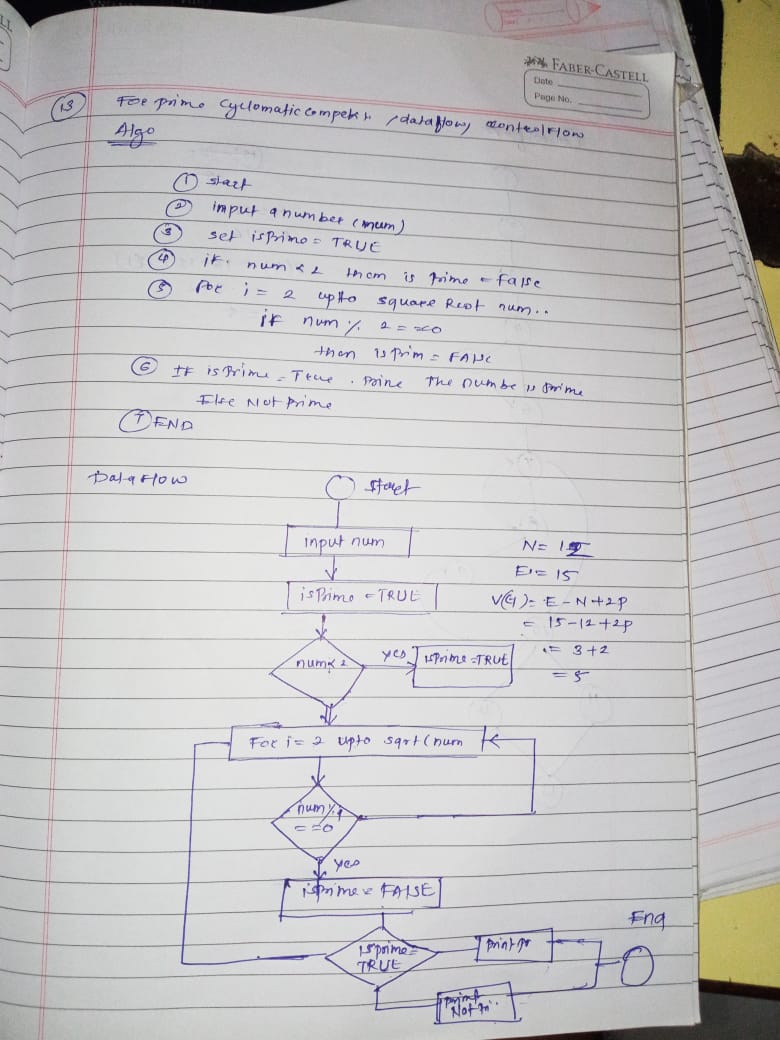 FABER-CASTELL
Date
Page No.
13 For prime Cyclomatic compek , dataflow, controlflow
Algo
1 start
2 input a number (num)
3 set isPrime = TRUE
4 if num < 2 then is prime = false
5 For i = 2 upto square Root num..
if num % 2 = =0
then isPrim = FALSE
6 If isPrime = True . Prine the numbe is prime
Else Not prime
7 END
Data Flow
Start
input num
N= 12
E = 15
isPrime = TRUE
V(G) = E - N + 2P
= 15-12+2P
num< 2
yes
isPrime =TRUE
= 3+2
= 5
For i= 2 upto sqrt(num
num % i
= =0
yes
isprime = FALSE
End
isprime=
TRUE
print pr
print
Not Pri..